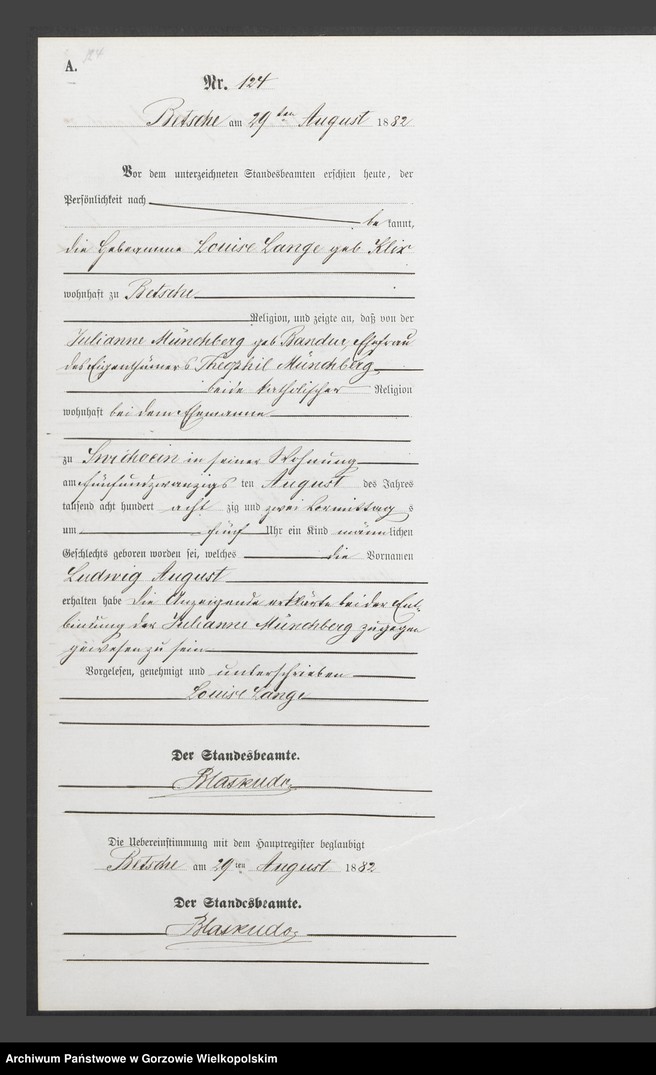 A.
124
Nr. 124
Betsche am 29 ten August 1882
Vor dem unterzeichneten Standesbeamten erschien heute, der
Persönlichkeit nach
be kannt,
die Hebeamme Louise Lange geb Klix
wohnhaft zu Betsche
Religion, und zeigte an, daß von der
Julianne Münchberg geb Bandur, Ehefrau
des Eigenthümers Theophil Münchberg
beide katholischer Religion
wohnhaft bei dem Ehemanne
zu in seiner Wohnung
am fünfundzwanzigs ten August des Jahres
tausend acht hundert acht zig und zwei Vormittag s
um fünf Uhr ein Kind männ lichen
Geschlechts geboren worden sei, welches die Vornamen
Ludwig August
erhalten habe Die Anzeigende erklärte bei der Ent-
bindung der Julianne Münchberg zugegen
gewesen zu sein
Vorgelesen, genehmigt und unterschrieben
Louise Lange
Der Standesbeamte.
Die Uebereinstimmung mit dem Hauptregister beglaubigt
Betsche am 29 ten August 1882
Der Standesbeamte.
Archiwum Państwowe w Gorzowie Wielkopolskim